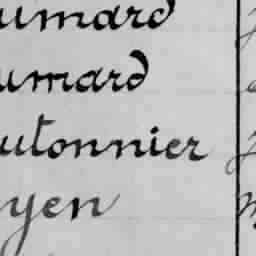 umard
umard
utonnier
yen